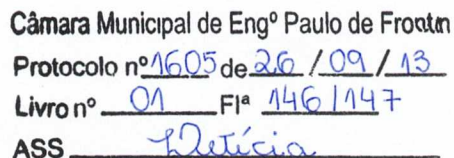 Câmara Municipal de Engº Paulo de Frontin
Protocolo nº 1605 de 26 / 09 / 13
Livro nº 01 Flª 146/147
ASS Letícia